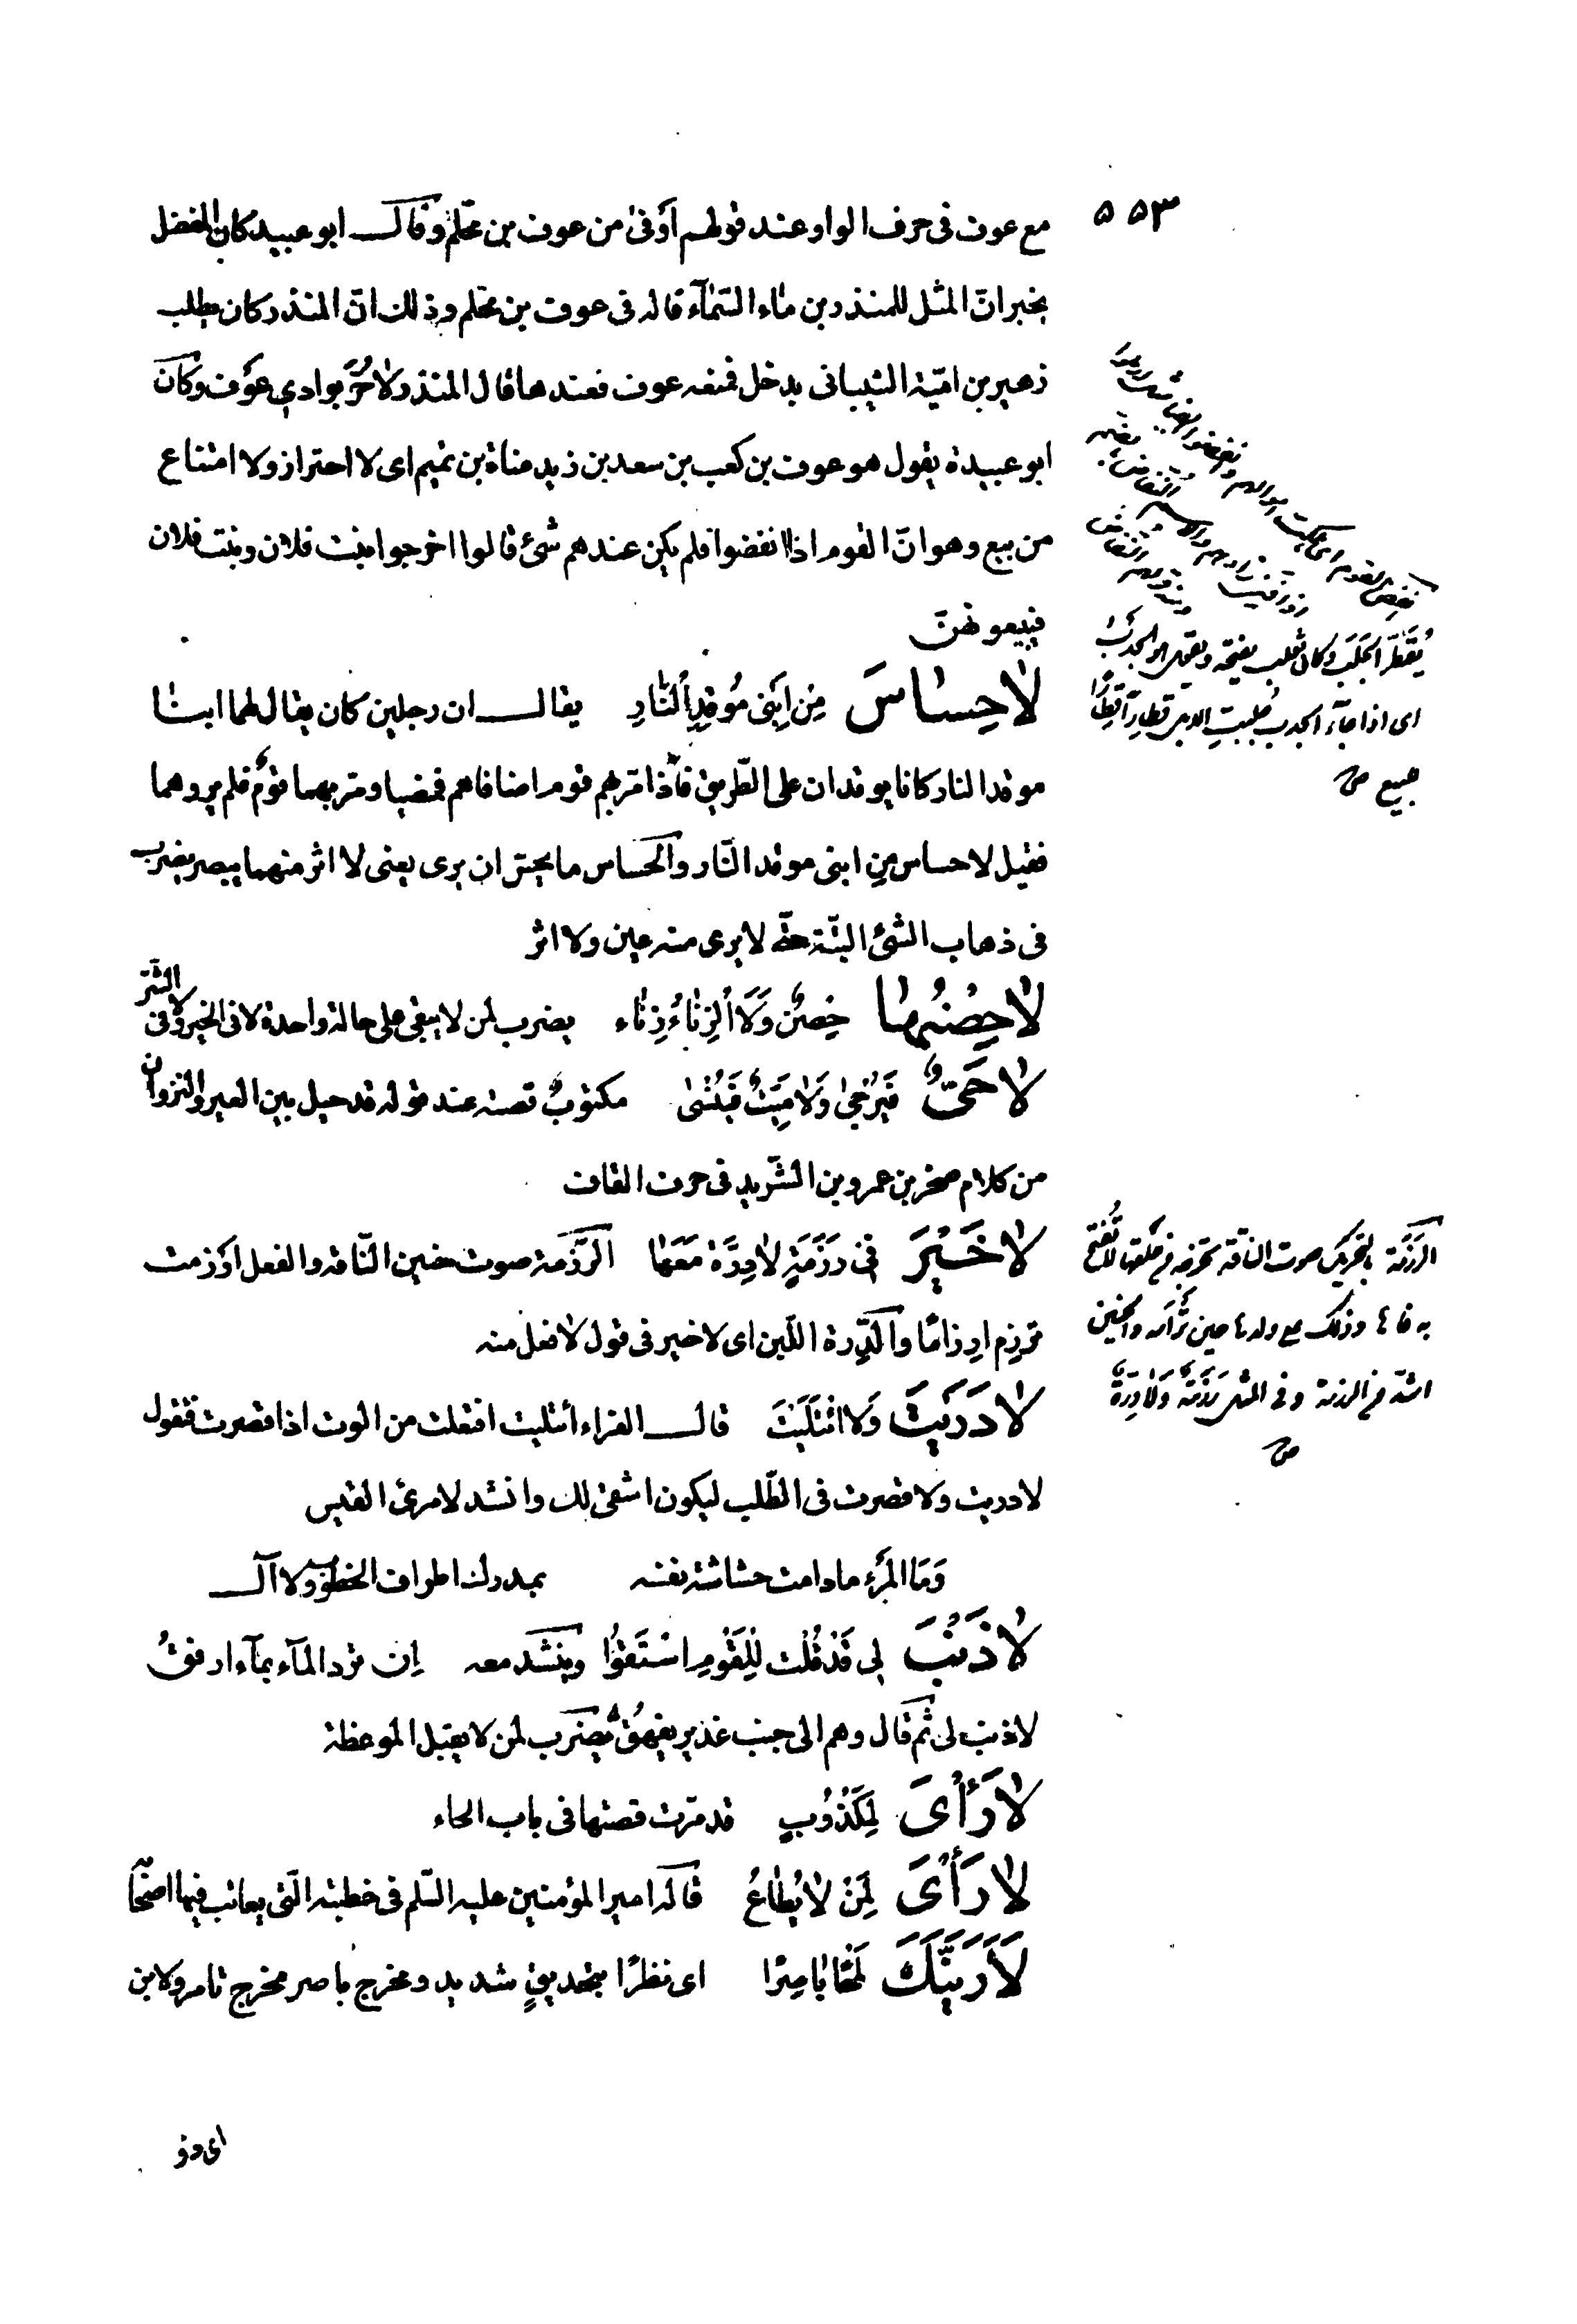 ٥٥٣
مع عوف فى حرف الواو عند قولهم أوفى من عوف بن محلّم وقال ابو عبيد كان المفضل
يخبر انّ المثل للمنذر بن ماء السّمآء قاله فى عوف بن محلّم وذلك انّ المنذر كان يطلب
زهير بن اميّة الشيبانى بدخل فمنعه عوف فعندها قال المنذر لا حُرَّ بوادى عوف وكان
ابو عبيدة يقول هو عوف بن كعب بن سعد بن زيد مناة بن تميم اى لا احتراز ولا امتناع
من بيع وهو انّ القوم اذا انفضوا فلم يكن عندهم شئ قالوا اخرجوا بنت فلان وبنت فلان
فيبيعونهنّ
لَا حِسَاسَ مِنِ ابْنَىْ مُوقِدِ النَّارِ يقال ان رجلين كان يقال لهما ابنا
موقد النار كانا يوقدان على الطّريق فاذا مرّ بهم قوم اضافاهم فمضيا ومرّ بهما قومٌ فلم يروهما
فقيل لا حساس من ابنى موقد النّار والحساس ما يحسّ ان يرى يعنى لا اثر منهما يبصر يضرب
فى ذهاب الشئ البتّة حتّى لا يرى منه عين ولا اثر
لَا حِصْنُهَا حِصْنٌ وَلَا الزِّنَاءُ زِنَاء يضرب لمن لا يبقى على حالة واحدة لا فى الخير ولا فى الشّر
لَا حَىٌّ فَيُرْجَى وَلَا مَيِّتٌ فَيُنْسَى مكتوبٌ قصته عند قوله قد حيل بين العير والنزوان
من كلام صخر بن عمرو بن الشّريد فى حرف القاف
لَا خَيْرَ فِى رَزَمَةٍ لَا دِرَّةَ مَعَهَا الرَّزَمة صوت حنين النّاقة والفعل ارزمت
ترزم ارزامًا والدِّرة اللّبن اى لا خير فى قول لا فعل منه
لَا دَرَيْتَ وَلَا ائْتَلَيْتَ قال الفراء ائتليت افتعلت من الوت اذا قصرت فتقول
لا دريت ولا قصرت فى الطّلب ليكون اشقى لك وانشد لامرئ القيس
وَمَا المَرْءُ ما دامت حشاشة نفسه بمدرك اطراف الخطوب ولا آل
لَا ذَنْبَ لِى قَدْ قُلْت لِلْقَوْمِ اسْتَقُوا وينشد معه اِن ترد المآء بمآء ارفقُ
لا ذنب لى ثم قال وهم الى جنب غدير يفهق يضرب لمن لا يقبل الموعظة
لَا رَأْىَ لِكَذُوبٍ قد مرّت قصتها فى باب الحاء
لَا رَأْىَ لِمَنْ لَا يُطَاعُ قاله امير المؤمنين عليه السّلم فى خطبته الّتى يعاتب فيها اصحابه
لَأُرِيَنَّكَ لَمْحًا بَاصِرًا اى نظرًا بتحديقٍ شديد ومخرج باصر مخرج تامر ولابن
اى ذو
يُقَطِّرُ الجَلَبَ وكان ثعلب يفتحه ويقول هو الجدب
اى اذا جآء الجدب جلبت الابل قطارًا قطارًا
للبيع ص
الرَزَمَة بالتحريك صوت الناقة تخرجه من حلقها لا تفتح
به فاها وذلك مع ولدها حين ترأمه والحنين
اشدّ من الرزمة وفى المثل رَزَمَةٌ وَلَا دِرَّةٌ
ص